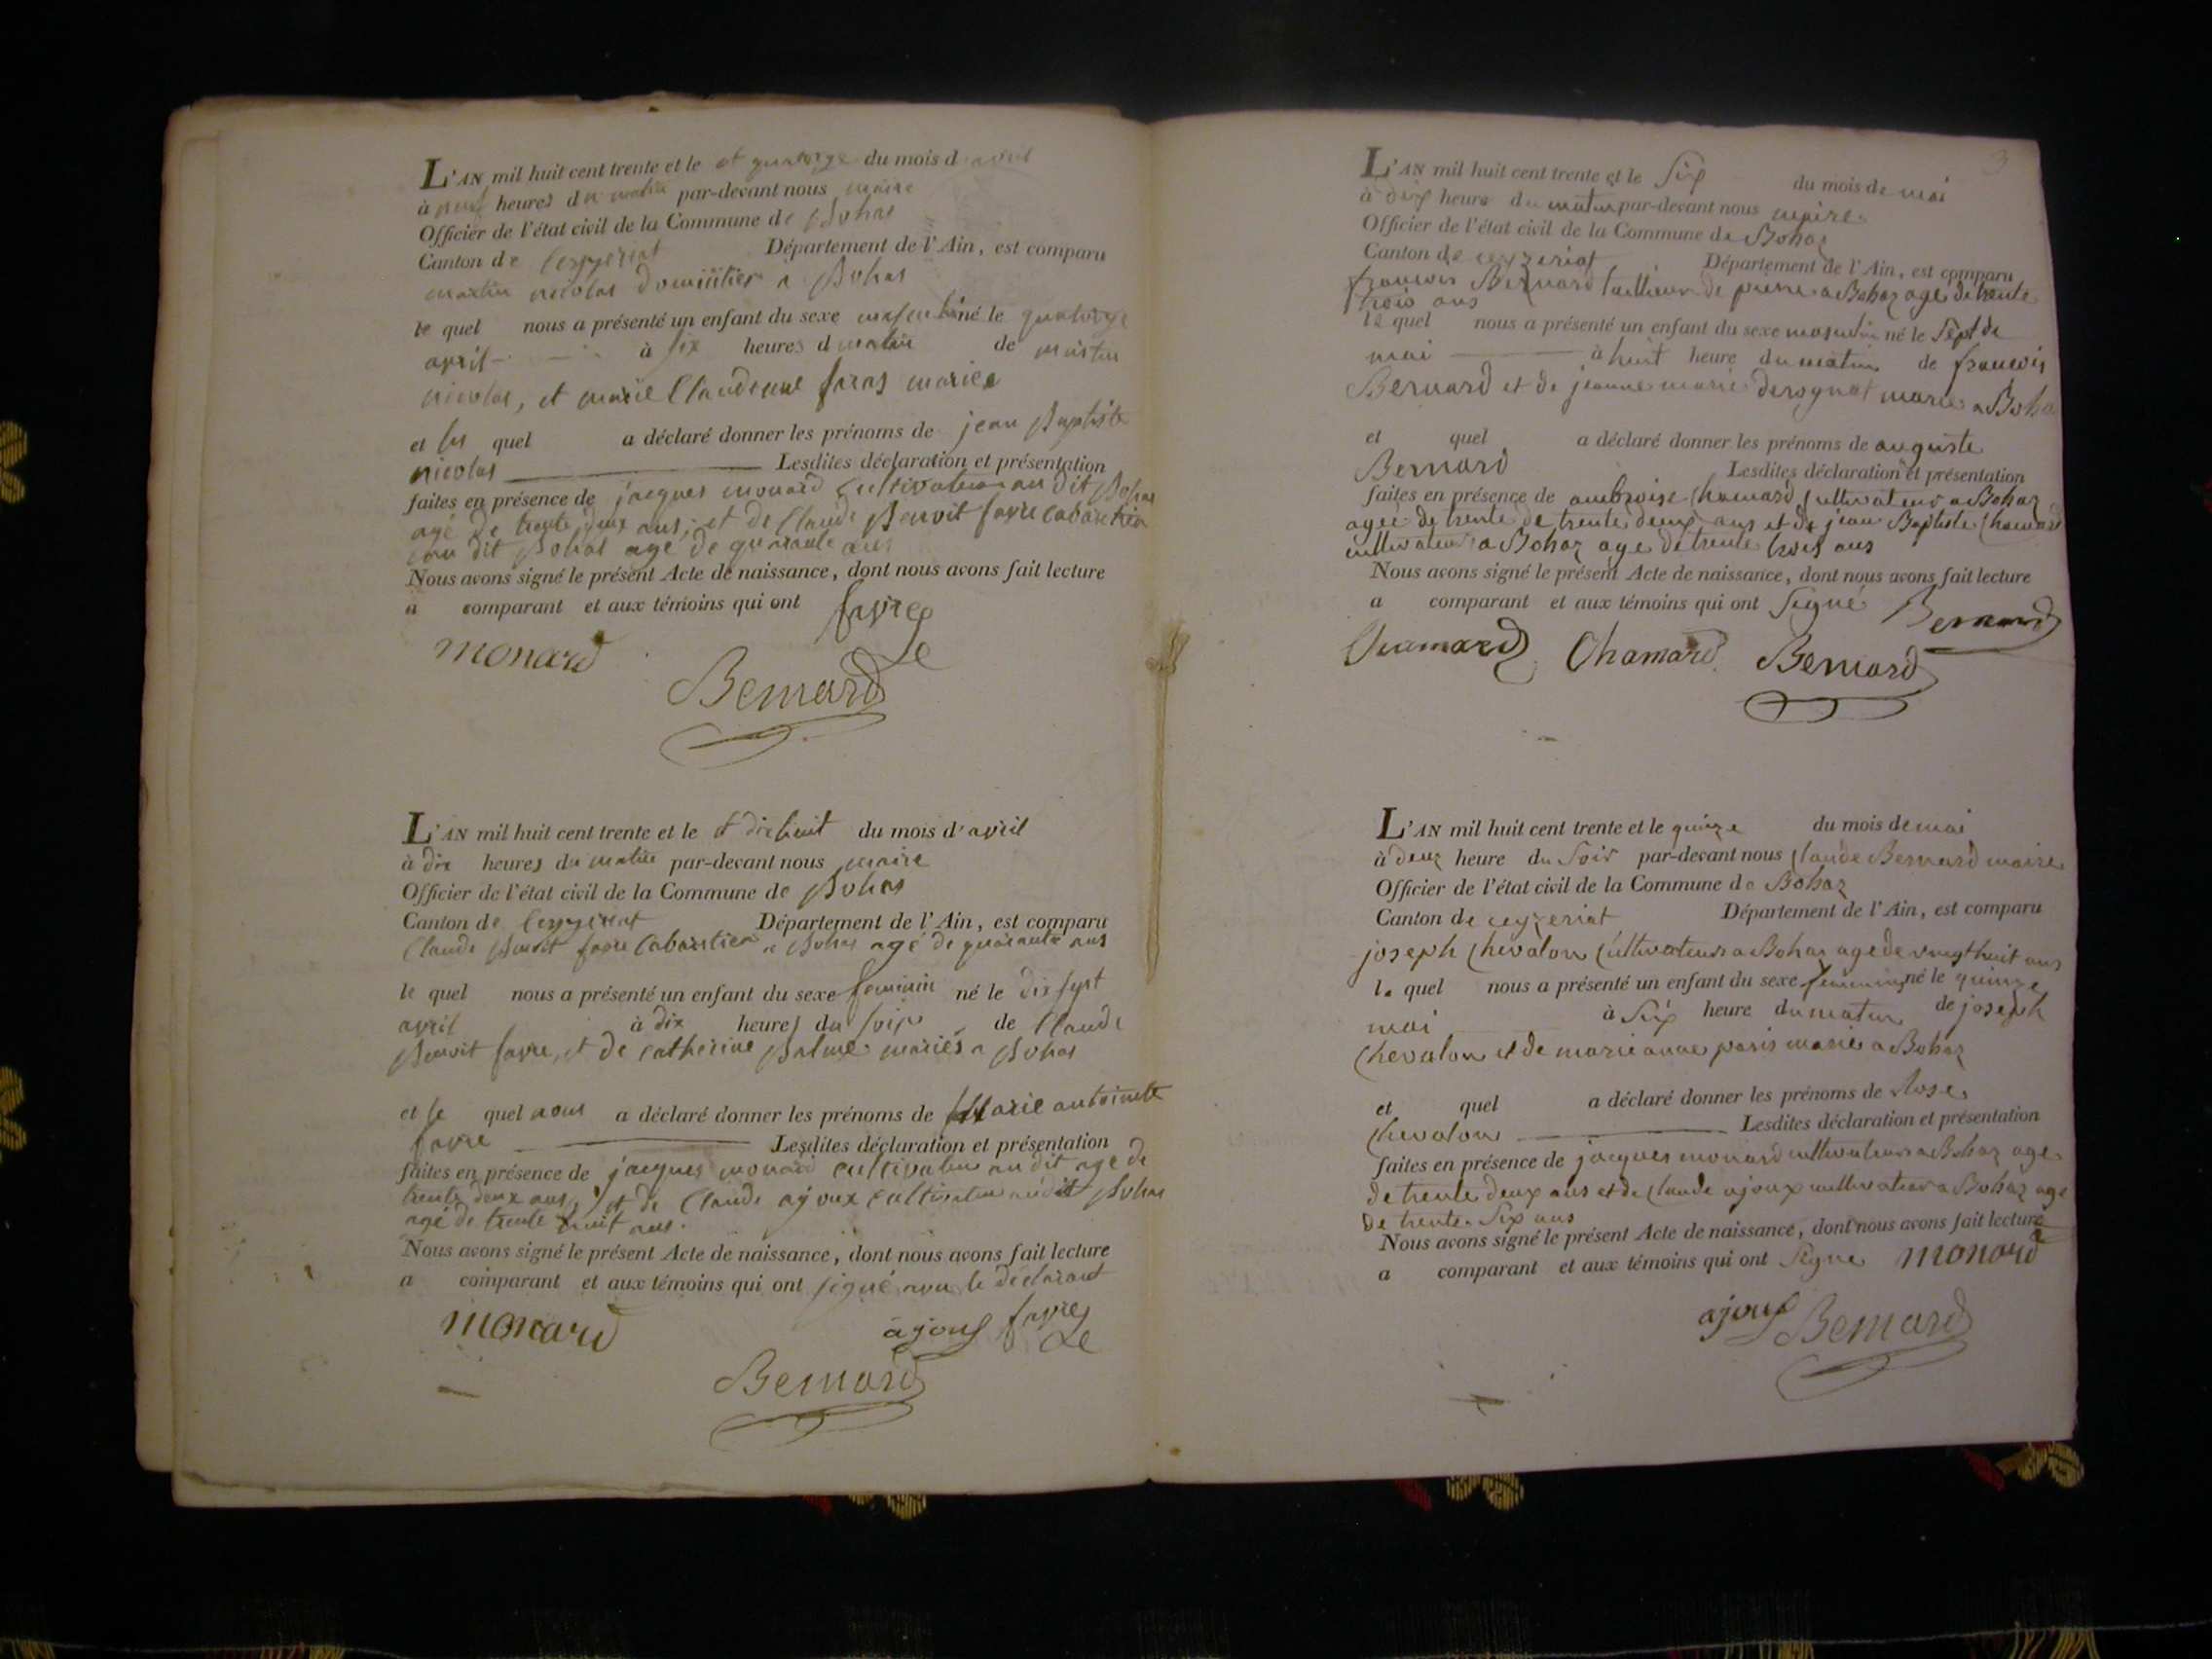 L'AN mil huit cent trente et le et quatorze du mois d avril
à neuf heures du matin par-devant nous maire
Officier de l'état civil de la Commune de Bohas
Canton de Ceyzeriat Département de l'Ain, est comparu
martin nicolas domicilier a Bohas
le quel nous a présenté un enfant du sexe masculin né le quatorze
avril à six heures d matin de martin
nicolas, et marie Claudine faras mariés
et le quel a déclaré donner les prénoms de jean Baptiste
nicolas Lesdites déclaration et présentation
faites en présence de jacques monard cultivateur au dit Bohas
agé de trente deux ans, et de Claude Benoit favre cabaretier
au dit Bohas agé de quarante ans
Nous avons signé le présent Acte de naissance, dont nous avons fait lecture
a comparant et aux témoins qui ont favre
monard
Bernard
L'AN mil huit cent trente et le et dix huit du mois d'avril
à dix heures du matin par-devant nous maire
Officier de l'état civil de la Commune de Bohas
Canton de Ceyzeriat Département de l'Ain, est comparu
Claude Benoit favre Cabaretier a Bohas agé de quarante ans
le quel nous a présenté un enfant du sexe feminin né le dix sept
avril à dix heures du soir de Claude
Benoit favre, et de catherine Balme mariés a Bohas
et le quel nous a déclaré donner les prénoms de Marie antoinette
favre Lesdites déclaration et présentation
faites en présence de jacques monard cultivateur au dit age de
trente deux ans, et de Claude ajoux cultivateur au dit Bohas
agé de trente huit ans.
Nous avons signé le présent Acte de naissance, dont nous avons fait lecture
a comparant et aux témoins qui ont signé avec le déclarant
monard ajoux favre
Bernard
3
L'AN mil huit cent trente et le Six du mois de mai
à dix heure du matin par-devant nous maire
Officier de l'état civil de la Commune de Bohaz
Canton de ceyzeriat Département de l'Ain, est comparu
francois Bernard tailleur de pierre a Bohaz agé de trente
trois ans
le quel nous a présenté un enfant du sexe masculin né le Sept de
mai à huit heure du matin de francois
Bernard et de jeanne marie derognat marie a Boha
et quel a déclaré donner les prénoms de auguste
Bernard Lesdites déclaration et présentation
faites en présence de ambroise Chamard Cultivateur a Bohaz
ageé de trente de trente deux ans et de jean Baptiste Chamard
cultivateur a Bohaz age de trente trois ans
Nous avons signé le présent Acte de naissance, dont nous avons fait lecture
a comparant et aux témoins qui ont Signé Bernard
Chamard Chamard Bernard
L'AN mil huit cent trente et le quinze du mois de mai
à deux heure du Soir par-devant nous Claude Bernard maire
Officier de l'état civil de la Commune de Bohaz
Canton de ceyzeriat Département de l'Ain, est comparu
joseph Chevalon Cultivateur a Bohaz age de vingt huit ans
le quel nous a présenté un enfant du sexe feminin né le quinze
mai à Six heure du matin de joseph
Chevalon et de marie anne paris marie a Bohaz
et quel a déclaré donner les prénoms de Rose
Chevalon Lesdites déclaration et présentation
faites en présence de jacques monard cultivateur a Bohaz age
de trente deux ans et de Claude ajoux cultivateur a Bohaz age
De trente Six ans
Nous avons signé le présent Acte de naissance, dont nous avons fait lecture
a comparant et aux témoins qui ont Signe monard
ajoux Bernard